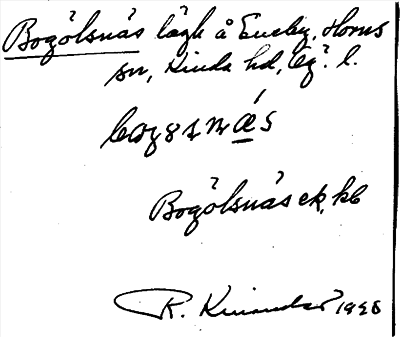 Bogölsnäs lägh å Eneby, Horns
sn, Kinda hd, Ög. l.
Bogölsnäs ek, kb
R. Kinander 1926